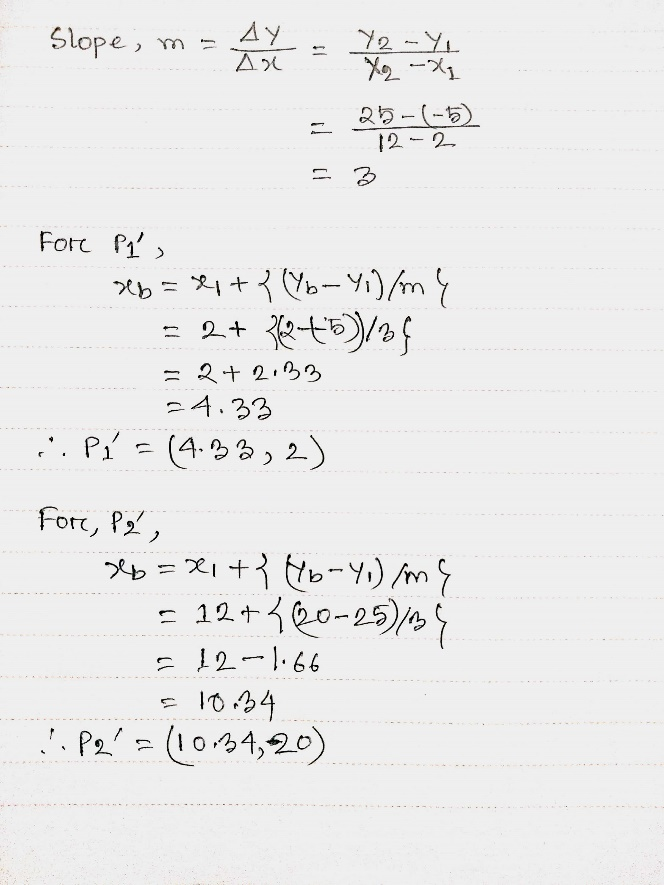 Slope, m = ΔY/Δx = Y2 - Y1/X2 - X1
= 25-(-5)/12-2
= 3
Fore P1',
xb = x1 + {(Yb - Y1)/m}
= 2 + {(2+5)/3}
= 2 + 2.33
= 4.33
∴ P1' = (4.33, 2)
Fore, P2',
xb = x1 + {(Yb - Y1)/m}
= 12 + {(20-25)/3}
= 12 - 1.66
= 10.34
∴ P2' = (10.34, 20)